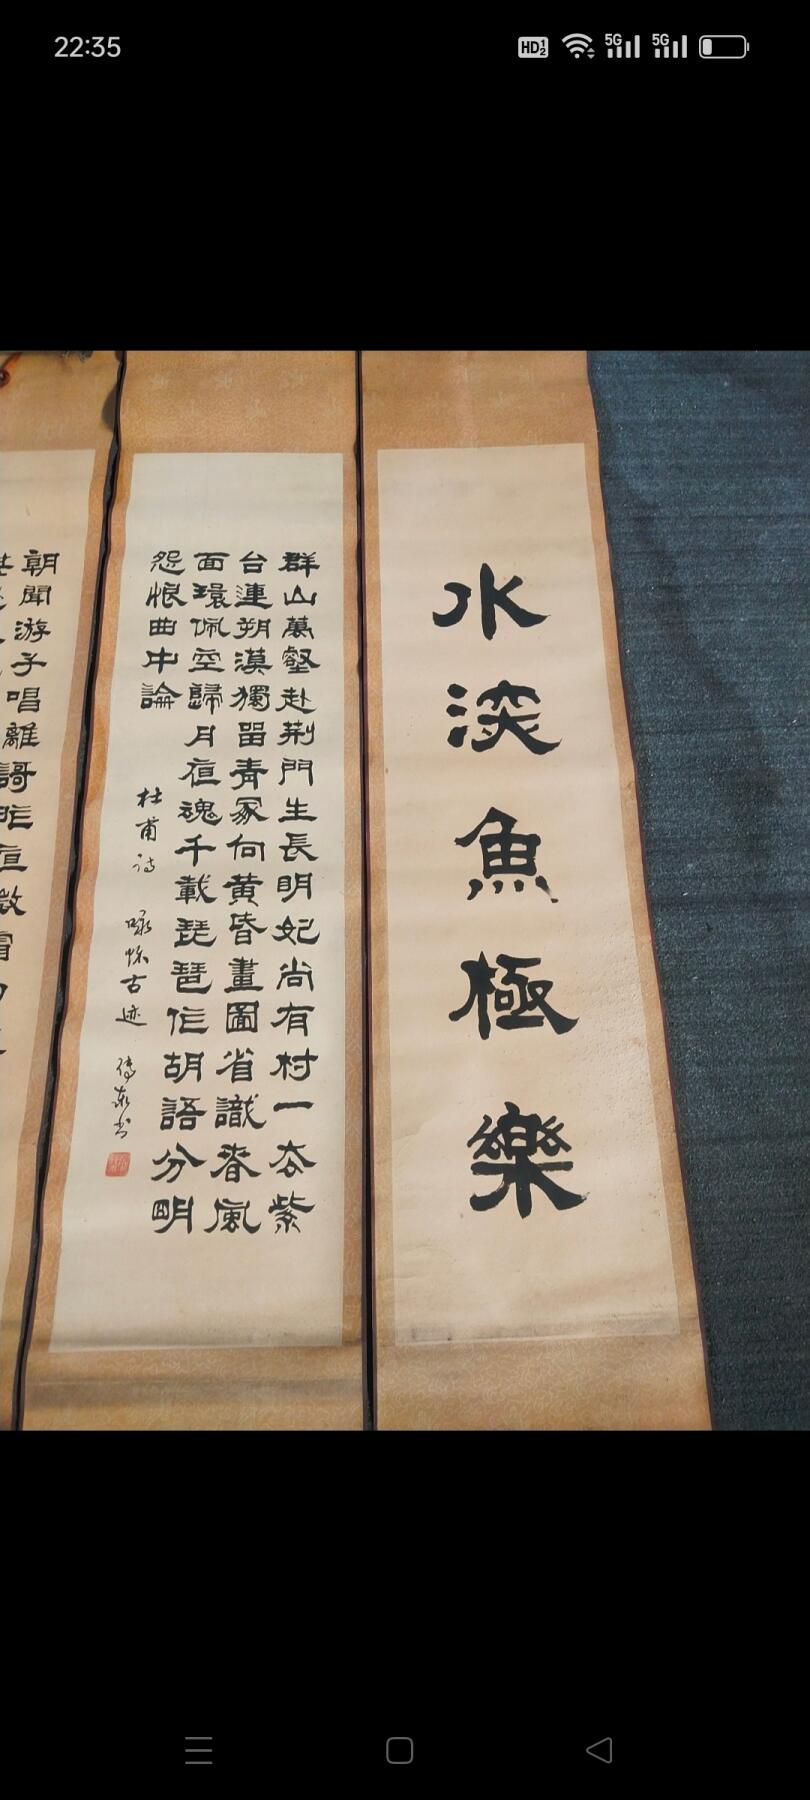 22:35
HD 5G 5G
水淡魚極樂
群山萬壑赴荆門生長明妃尚有村一去紫
台連朔漠獨留青冢向黃昏畫圖省識春風
面環佩空歸月夜魂千載琵琶作胡語分明
怨恨曲中論
杜甫诗 咏怀古迹
朝聞游子唱離謌昨夜微霜